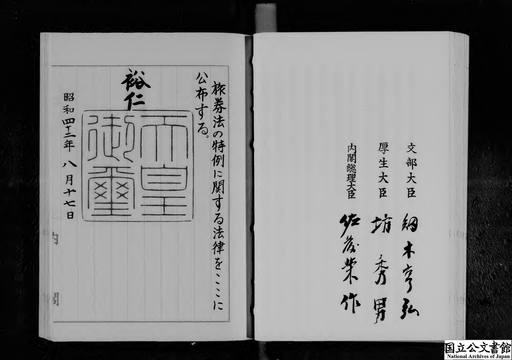 文部大臣 剱木亨弘
厚生大臣 坊秀男
内閣総理大臣 佐藤栄作
旅券法の特例に関する法律をここに
公布する。
裕仁
天皇
御璽
昭和四十二年八月十七日
内閣
国立公文書館
National Archives of Japan